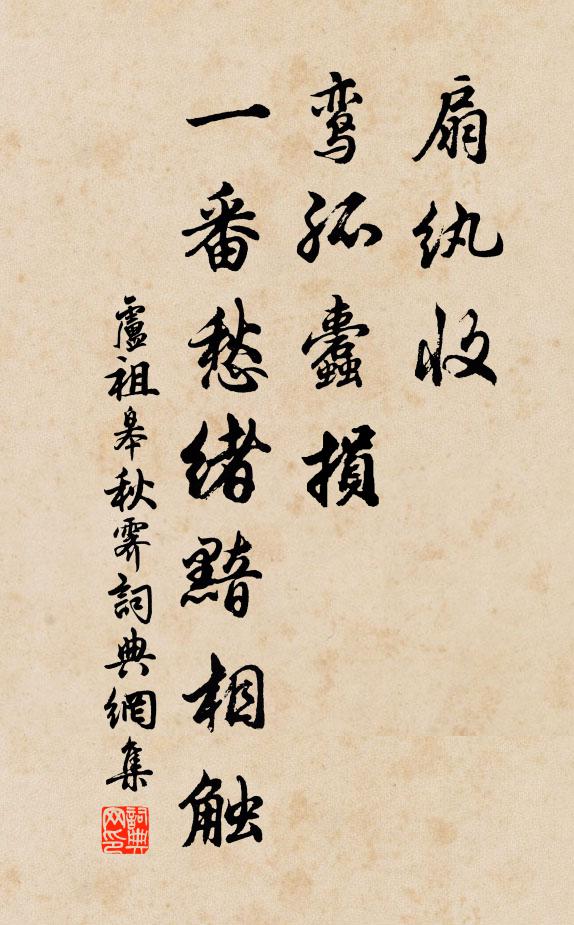 扇纨收
鸾孤蠹損
一番愁绪黯相触
盧祖皋秋霽詞典網集
詞典网印